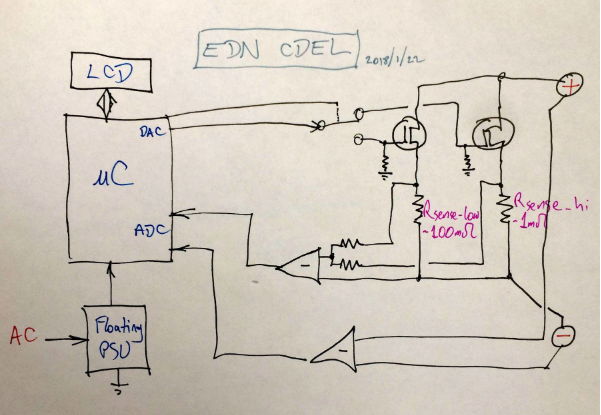 EDN CDEL
2018/1/22
LCD
+
DAC
μC
Rsense-low
~100mΩ
Rsense-hi
~1mΩ
ADC
-
Floating
PSU
AC
-
-